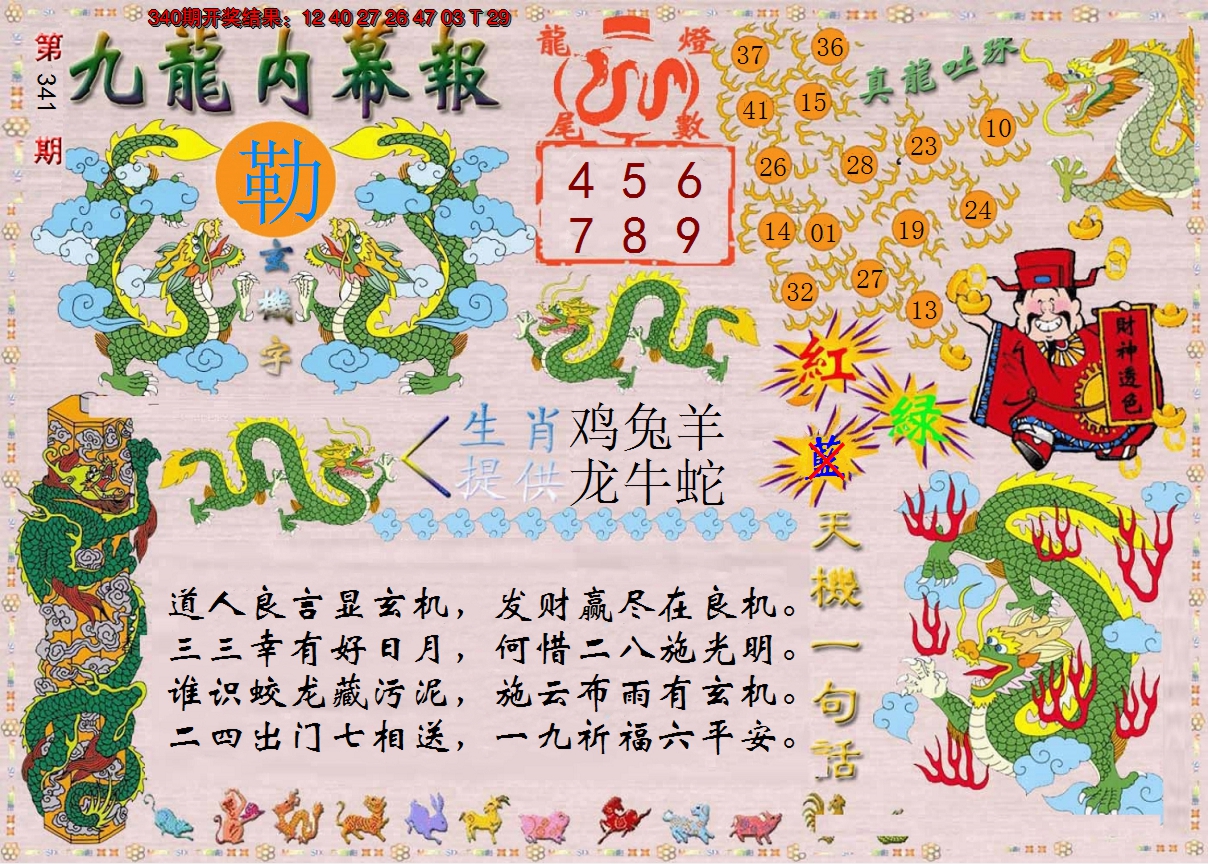 340期开奖结果：12 40 27 26 47 03 T 29
第341期
九龍内幕報
勒
玄機字
龍燈
尾數
4 5 6
7 8 9
真龍吐珠
37 36
41 15
26 28 23 10
14 01 19 24
32 27 13
財神透色
紅
綠
藍
生肖 鸡兔羊
提供 龙牛蛇
道人良言显玄机，发财赢尽在良机。
三三幸有好日月，何惜二八施光明。
谁识蛟龙藏污泥，施云布雨有玄机。
二四出门七相送，一九祈福六平安。
天機一句話